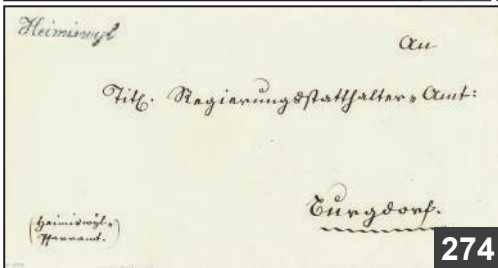 Heimiswyl
An
Titl. Regierungsstatthalter-Amt:
Burgdorf.
(Heimiswyl-
Pfarramt.)
274